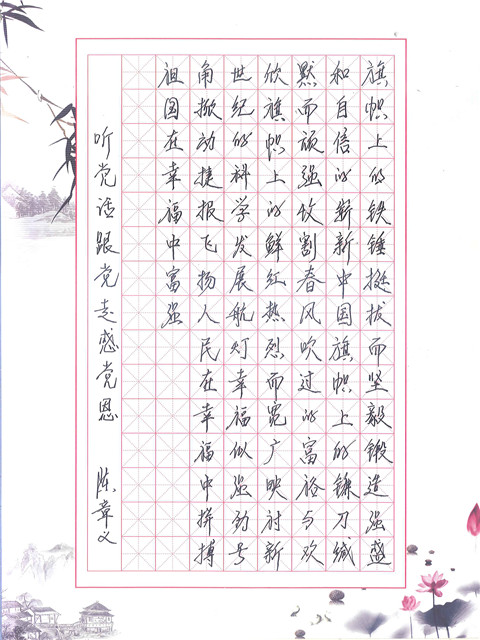 旗帜上的铁锤挺拔而坚毅锻造强盛
和自信的崭新中国旗帜上的镰刀缄
默而顽强收割春风吹过的富裕与欢
欣旗帜上的鲜红热烈而宽广映衬新
世纪的科学发展航灯幸福似强劲号
角掀动捷报飞扬人民在幸福中拼搏
祖国在幸福中富强
听党话跟党走感党恩 陈章义